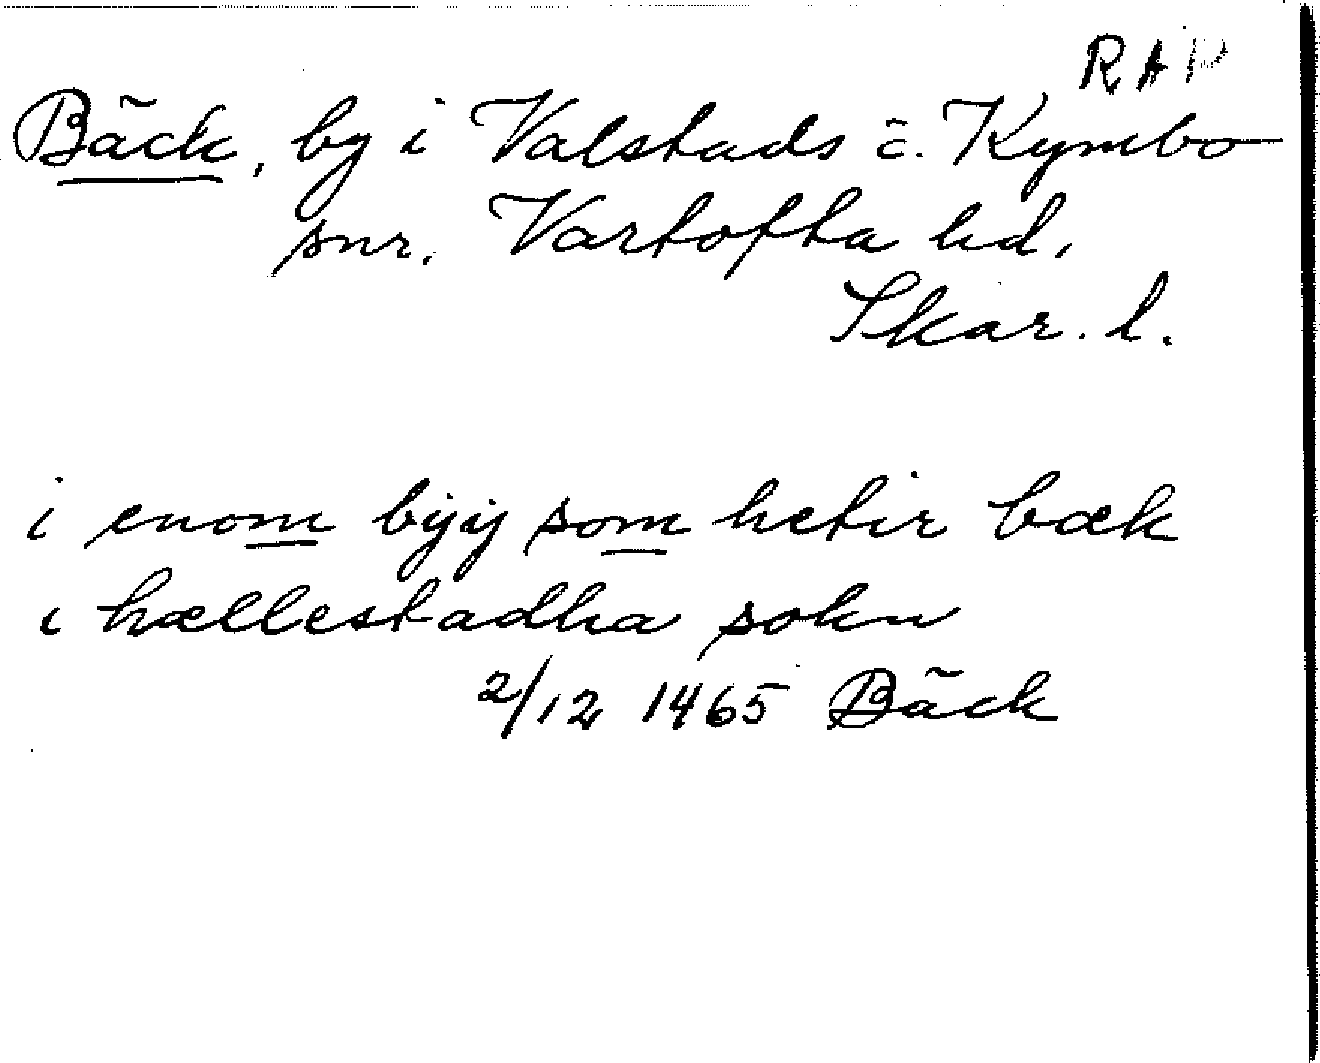 RAP
Bäck, by i Valstads o. Kymbo
snr. Vartofta hd.
Skar. l.
i enom bÿÿ som hetir bæk
i hællestadha sokn
2/12 1465 Bäck